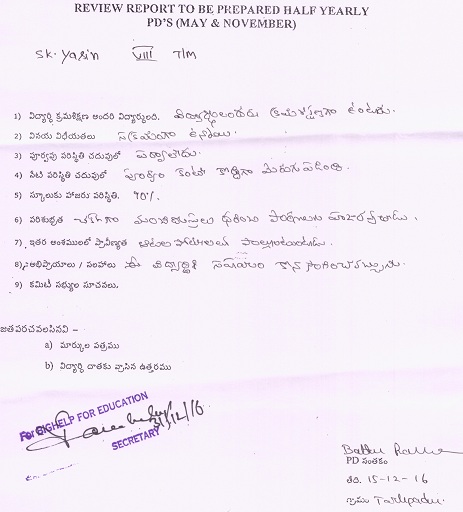 REVIEW REPORT TO BE PREPARED HALF YEARLY
PD'S (MAY & NOVEMBER)
SK. Yasin VIII T/M
1) విద్యార్థి క్రమశిక్షణ అందరి విద్యార్థులది.
2) వినయ విధేయతలు సక్రమంగా ఉన్నాయి.
3) పూర్వపు పరిస్థితి చదువులో పర్వాలేదు.
4) నేటి పరిస్థితి చదువులో పూర్వం కంటా కొద్దిగా మెరుగుపడింది.
5) స్కూలుకు హాజరు పరిస్థితి. 90%.
6) పరిశుభ్రత
7) ఇతర అంశములలో ప్రావీణ్యత ఆటల పోటీలలో పాల్గొంటుంటాడు.
8) అభిప్రాయాలు / సలహాలు ఈ విద్యార్థికి సహాయం
9) కమిటీ సభ్యుల సూచనలు.
జతపరచవలసినవి –
a) మార్కుల పత్రము
b) విద్యార్థి దాతకు వ్రాసిన ఉత్తరము
For BIGHELP FOR EDUCATION
31/12/16
SECRETARY
PD సంతకం
తేది. 15-12-16
గ్రామం Tarlupadu.